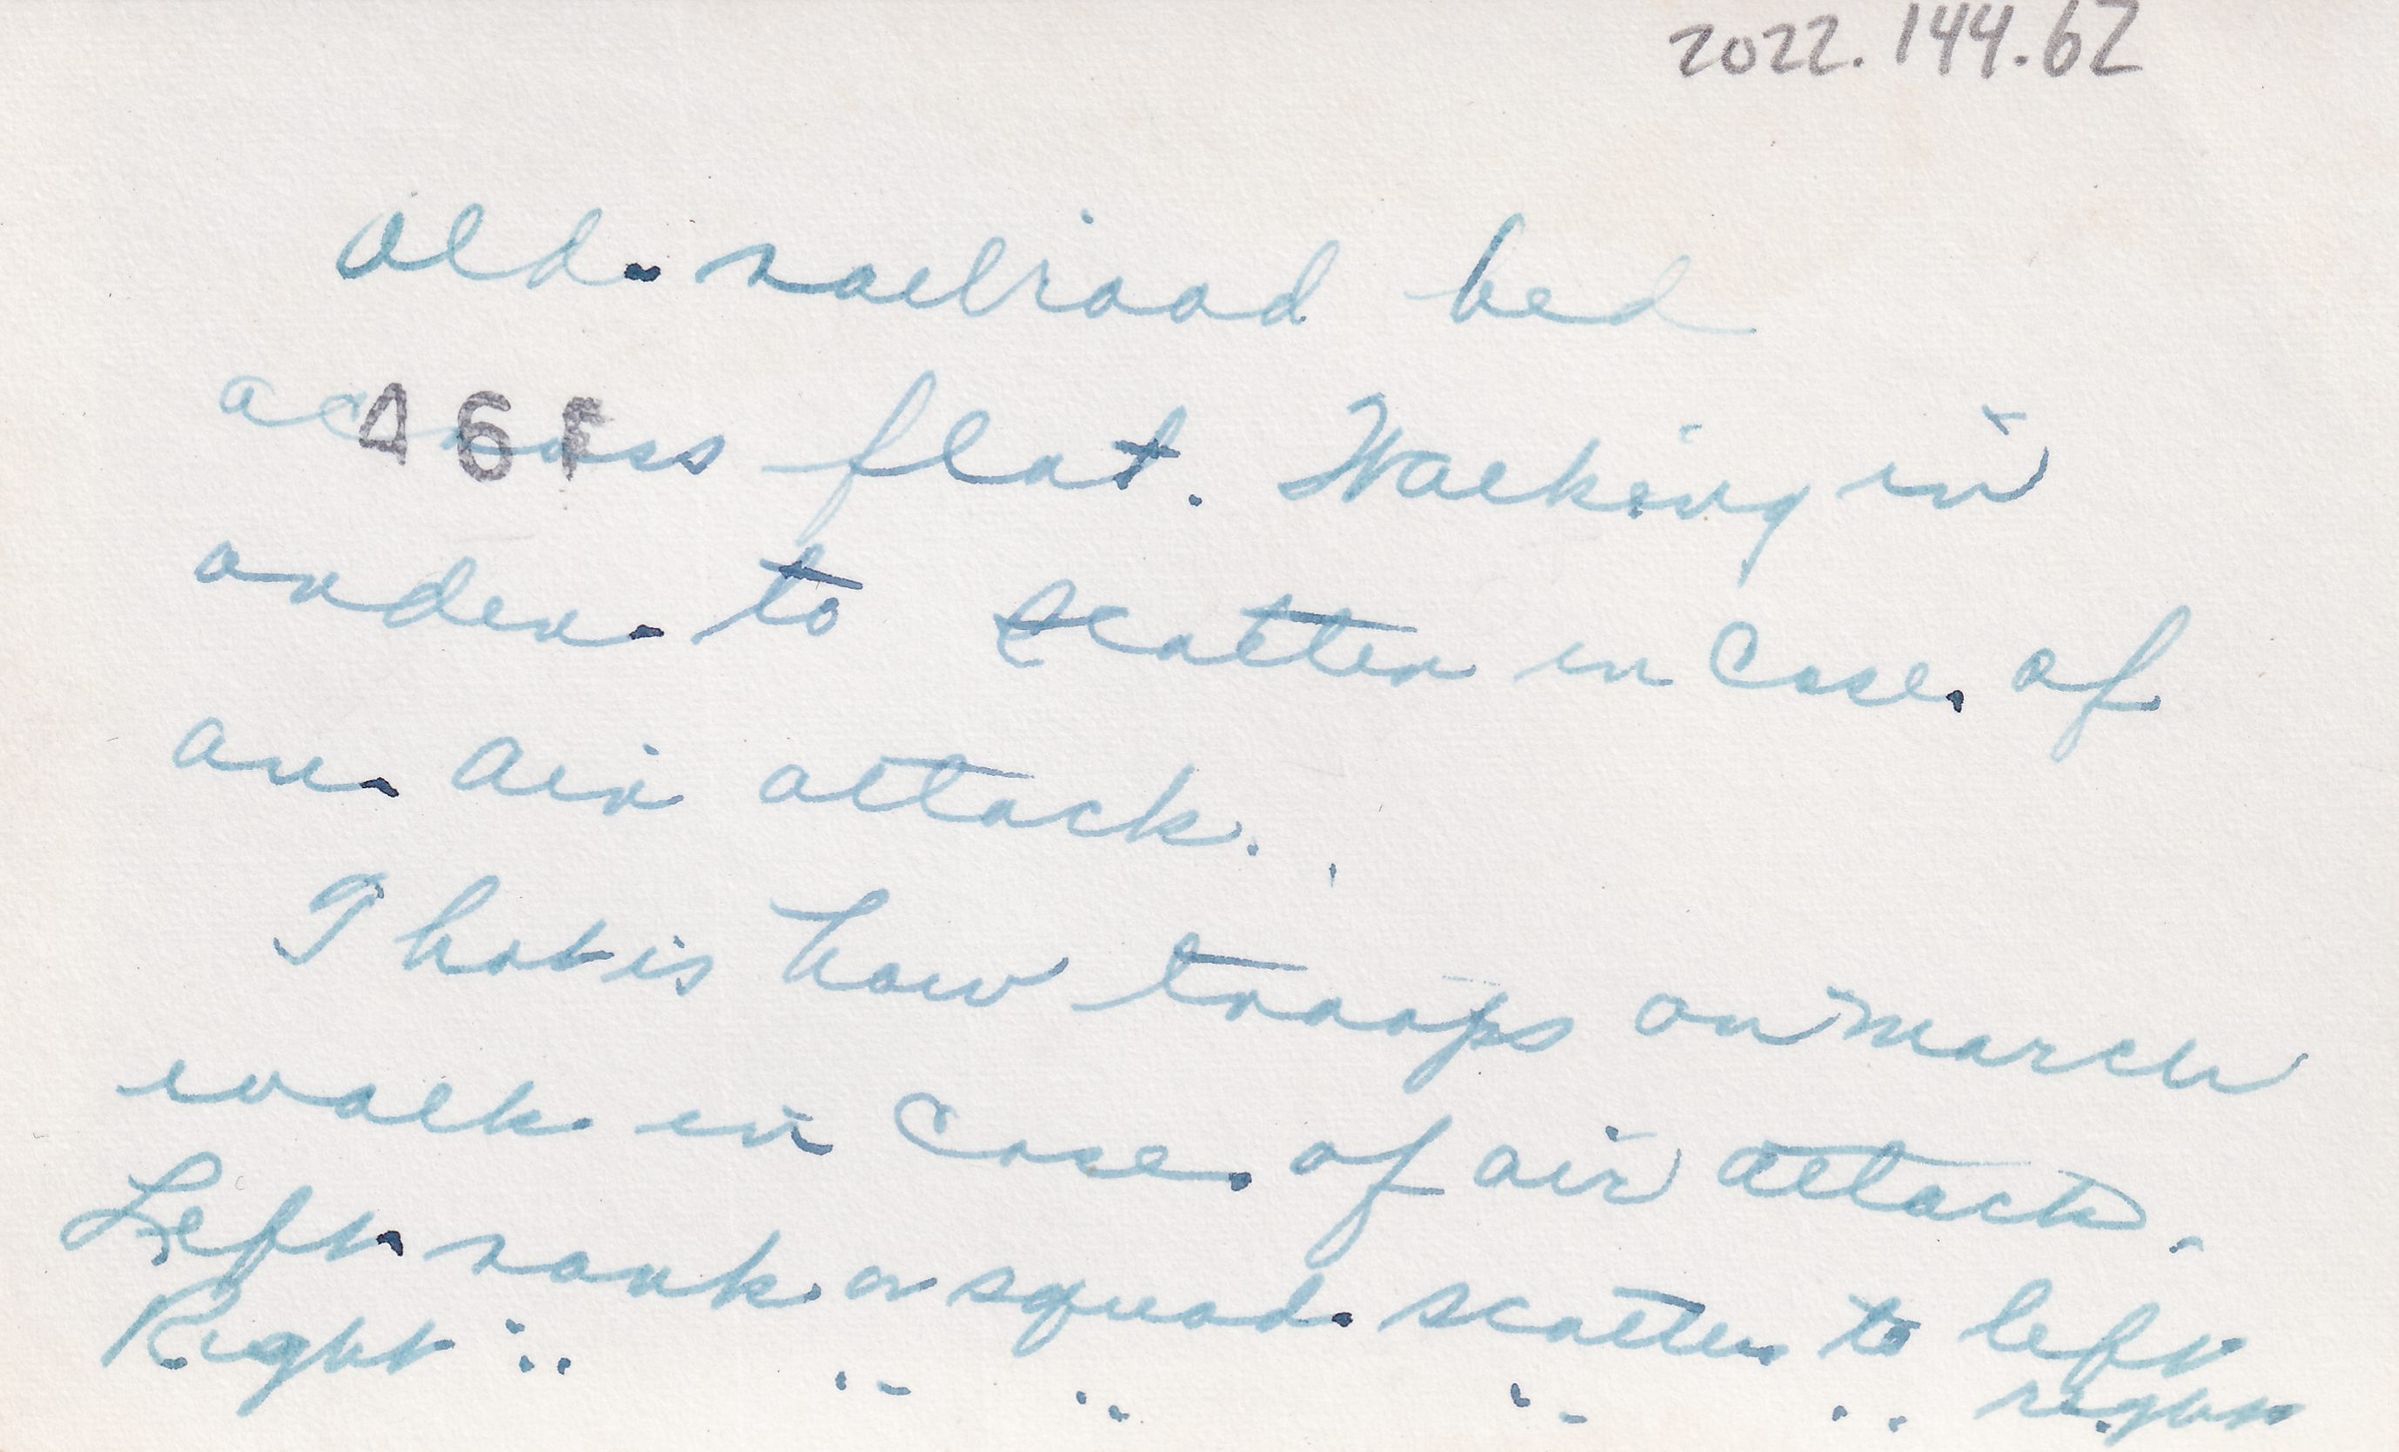 2022.144.62
Old railroad bed
across flat. Walking in
order to scatter in case of
an air attack.
That is how troops on march
walk in case of air attack.
Left rank or squad scatter to left
Right " " " " " right
46